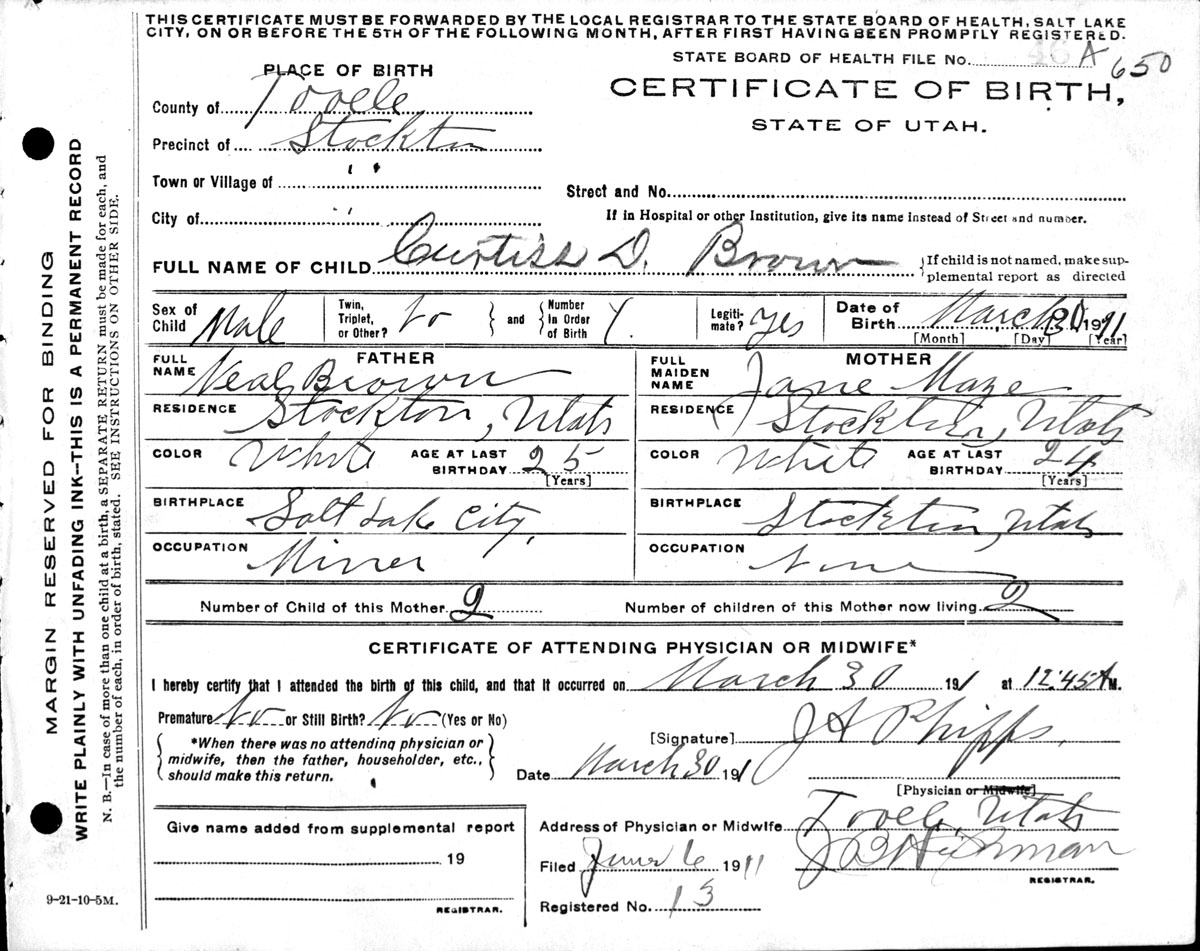 THIS CERTIFICATE MUST BE FORWARDED BY THE LOCAL REGISTRAR TO THE STATE BOARD OF HEALTH, SALT LAKE
CITY, ON OR BEFORE THE 5TH OF THE FOLLOWING MONTH, AFTER FIRST HAVING BEEN PROMPTLY REGISTERED.
STATE BOARD OF HEALTH FILE No. 46 A 650
PLACE OF BIRTH
CERTIFICATE OF BIRTH,
STATE OF UTAH.
County of Tooele
Precinct of Stockton
Town or Village of " "
Street and No.
City of " "
If in Hospital or other Institution, give its name instead of Street and number.
FULL NAME OF CHILD Curtiss D. Brown
{If child is not named, make sup-
plemental report as directed
Sex of Child Male
Twin, Triplet, or Other? No
and
Number In Order of Birth
Legiti-mate? Yes
Date of Birth March 30 1911
[Month] [Day] [Year]
FATHER
FULL NAME Neal Brown
MOTHER
FULL MAIDEN NAME Jane Maze
RESIDENCE Stockton, Utah
RESIDENCE Stockton, Utah
COLOR White AGE AT LAST BIRTHDAY 25 [Years]
COLOR White AGE AT LAST BIRTHDAY 24 [Years]
BIRTHPLACE Salt Lake City,
BIRTHPLACE Stockton, Utah
OCCUPATION Miner
OCCUPATION None
Number of Child of this Mother 2
Number of children of this Mother now living 2
CERTIFICATE OF ATTENDING PHYSICIAN OR MIDWIFE*
I hereby certify that I attended the birth of this child, and that it occurred on March 30 191 at 12:45 A M.
Premature No or Still Birth? No (Yes or No)
*When there was no attending physician or
midwife, then the father, householder, etc.,
should make this return.
[Signature] J A Phipps,
Date March 30 191
[Physician or Midwife]
Give name added from supplemental report
19
REGISTRAR.
Address of Physician or Midwife Tooele, Utah
Filed June 6 1911
REGISTRAR.
Registered No. 13
9-21-10-5M.
MARGIN RESERVED FOR BINDING
WRITE PLAINLY WITH UNFADING INK--THIS IS A PERMANENT RECORD
N. B.—In case of more than one child at a birth, a SEPARATE RETURN must be made for each, and
the number of each, in order of birth, stated. SEE INSTRUCTIONS ON OTHER SIDE.